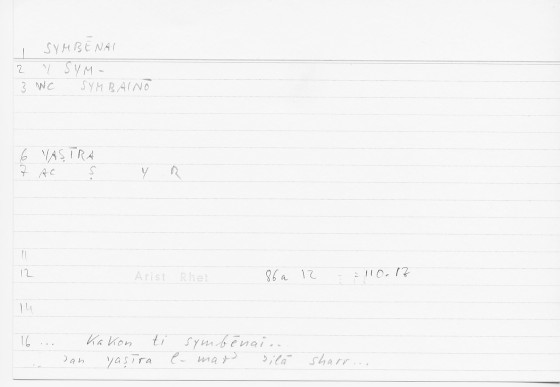 1 SYMBĒNAI
2 Y SYM-
3 WC SYMBAINŌ
6 YAṢĪRA
7 AC Ṣ Y R
11
12 Arist Rhet 86a 12 : = 110.17
14
16 ... Kakon ti symbēnai..
yaṣīra l- marʾ ʾilā sharr...